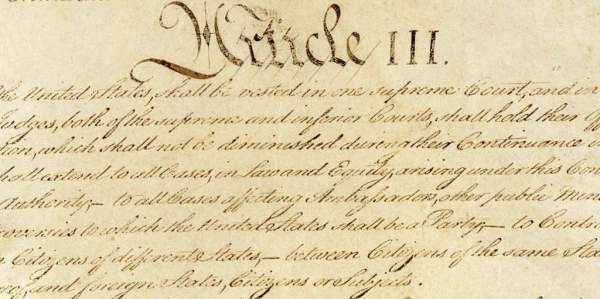 Article III.
the United States, shall be vested in one supreme Court, and in
Judges, both of the supreme and inferior Courts, shall hold their
tion, which shall not be diminished during their Continuance
shall extend to all Cases, in Law and Equity, arising under this Con
Authority;— to all Cases affecting Ambassadors, other public Min
roversies to which the United States shall be a Party;— to Contro
n Citizens of different States,— between Citizens of the same Sta
of, and foreign States, Citizens or Subjects.